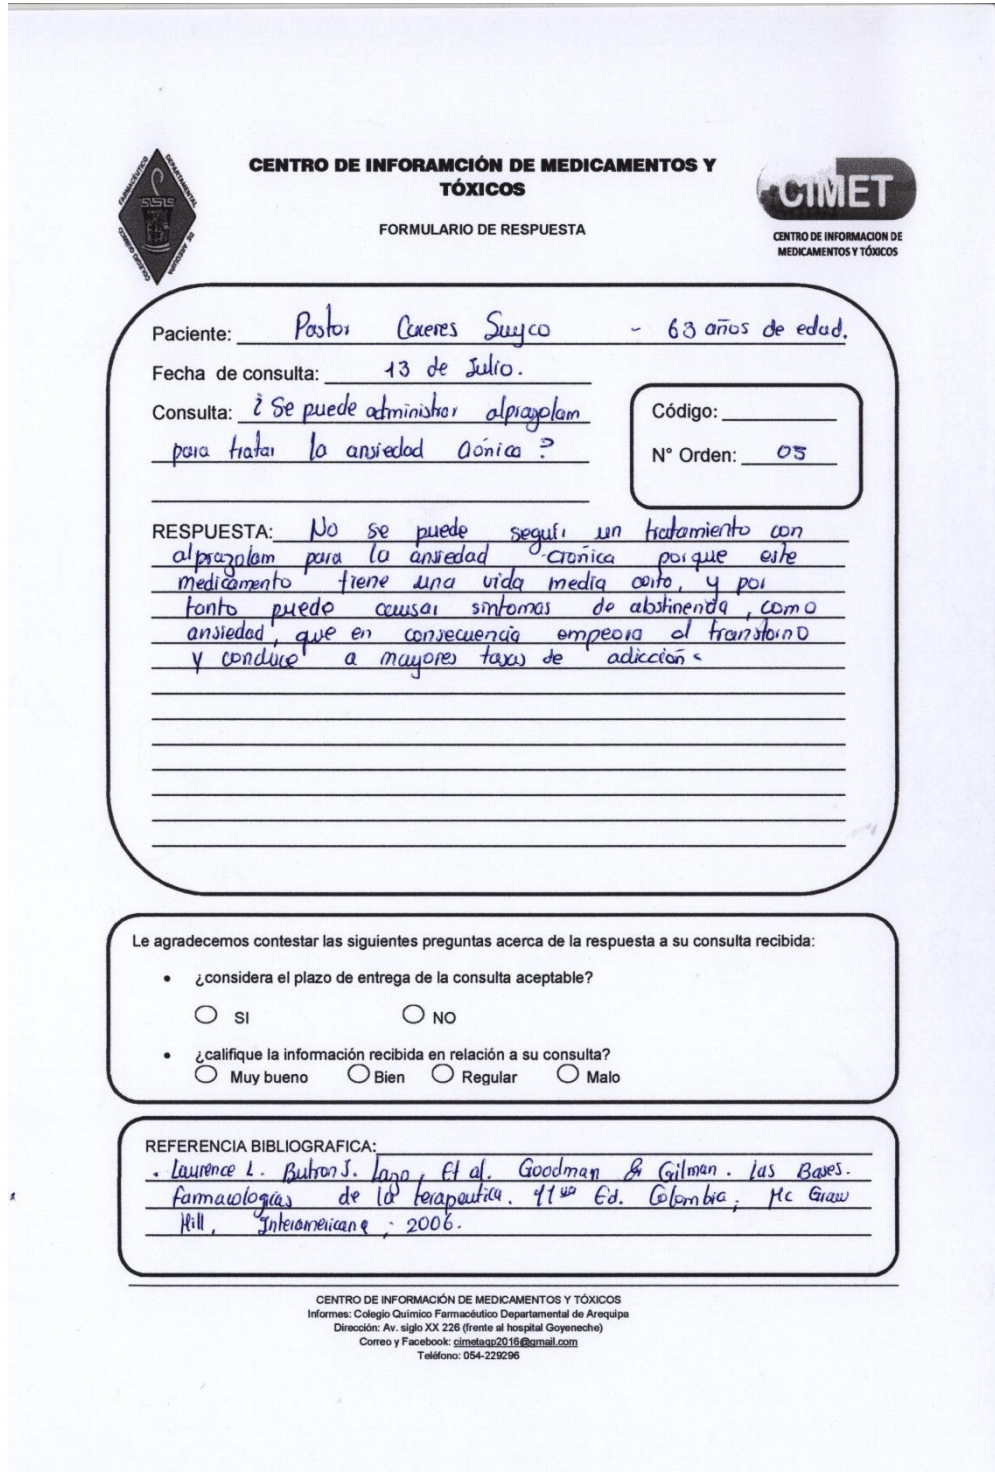 CENTRO DE INFORAMCIÓN DE MEDICAMENTOS Y
TÓXICOS
FORMULARIO DE RESPUESTA
COLEGIO QUIMICO FARMACÉUTICO DEPARTAMENTAL DE AREQUIPA
CIMET
CENTRO DE INFORMACION DE
MEDICAMENTOS Y TÓXICOS
Paciente: Pastor Caceres Suyco - 63 años de edad.
Fecha de consulta: 13 de Julio.
Consulta: ¿Se puede administrar alprazolam
para tratar la ansiedad crónica?
Código:
N° Orden: 05
RESPUESTA: No se puede seguir un tratamiento con
alprazolam para la ansiedad crónica porque este
medicamento tiene una vida media corta, y por
tanto puede causar sintomas de abstinencia, como
ansiedad, que en consecuencia empeora el transtorno
y conduce a mayores tasas de adicción.
Le agradecemos contestar las siguientes preguntas acerca de la respuesta a su consulta recibida:
• ¿considera el plazo de entrega de la consulta aceptable?
SI NO
• ¿califique la información recibida en relación a su consulta?
Muy bueno Bien Regular Malo
REFERENCIA BIBLIOGRAFICA:
. Laurence L. Butron J. Lazo, Et al. Goodman & Gilman. las Bases.
farmacologías de la terapeutica. 11 Ed. Colombia; Mc Graw
Hill, Interamericana; 2006.
CENTRO DE INFORMACIÓN DE MEDICAMENTOS Y TÓXICOS
Informes: Colegio Químico Farmacéutico Departamental de Arequipa
Dirección: Av. siglo XX 226 (frente al hospital Goyeneche)
Correo y Facebook: cimetaqp2016@gmail.com
Teléfono: 054-229296